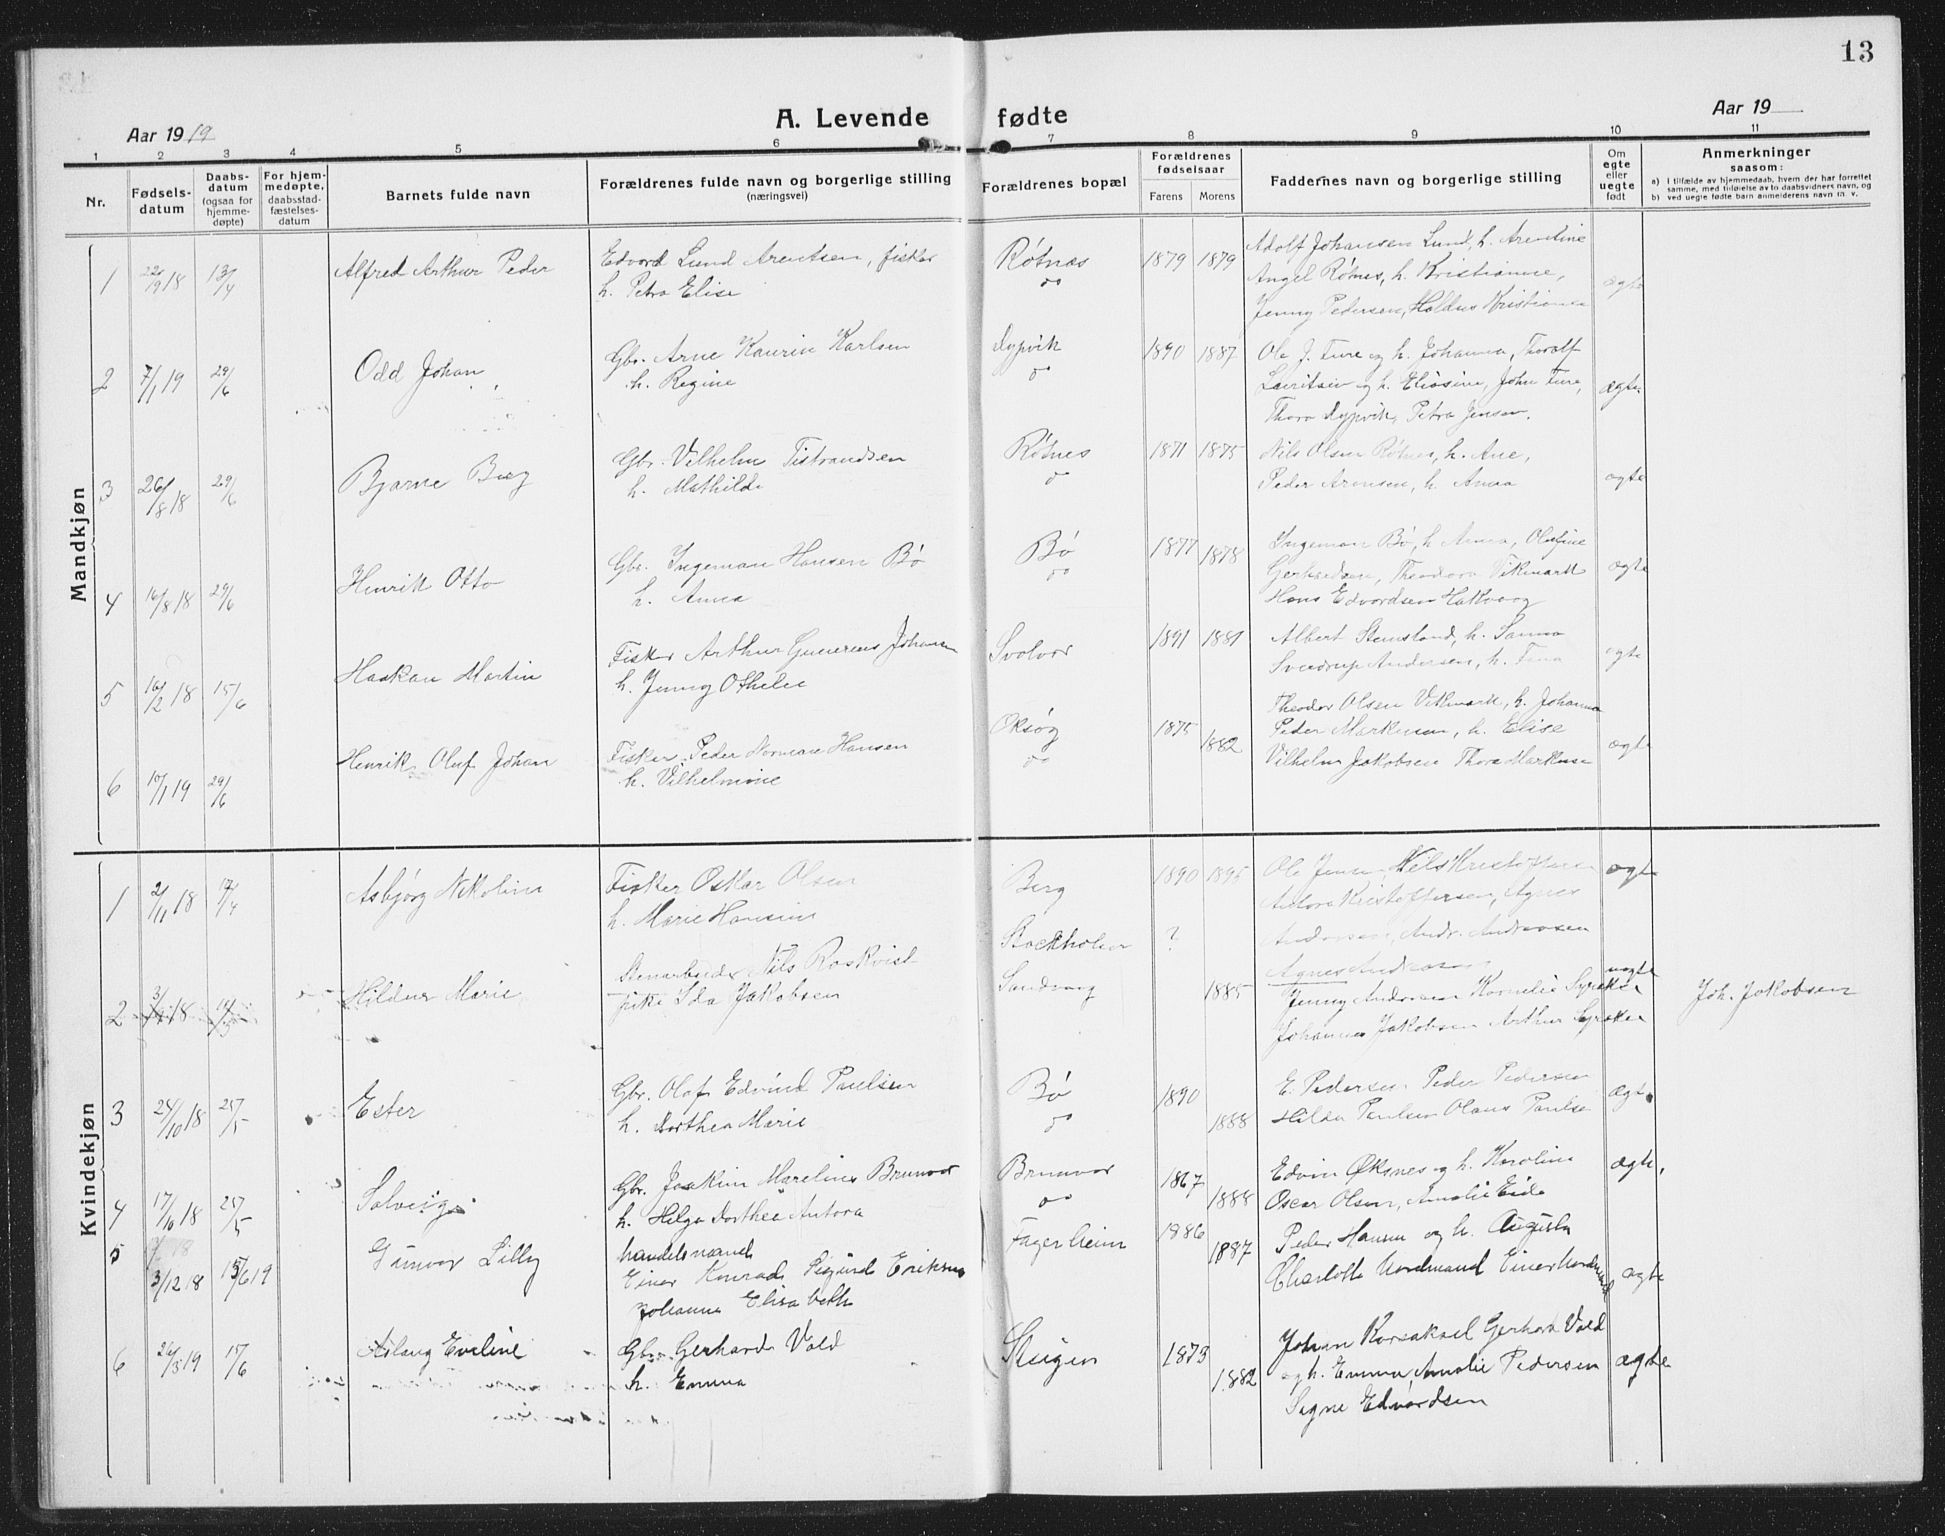 13
Aar 1919
A. Levende fødte
Aar 19
1 2 3 4 5 6 7 8 9 10 11
Nr.
Fødsels-
datum
Daabs-
datum
(ogsaa for
hjemme-
døpte)
For hjem-
medøpte,
daabsstad-
fæstelses-
datum
Barnets fulde navn
Forældrenes fulde navn og borgerlige stilling
(næringsvei)
Forældrenes bopæl
Forældrenes
fødselsaar
Farens Morens
Faddernes navn og borgerlige stilling
Om
egte
eller
uegte
født
Anmerkninger
saasom:
a) i tilfælde av hjemmedaab, hvem der har forrettet
samme, med tilføielse av to daabsvidners navn, og
b) ved uegte fødte barn anmelderens navn m. v.
Mandkjøn
1 22/9 18 13/4 Alfred Arthur Peder Edvard Lund Arentsen, fisker Røtnes 1879 1879 Adolf Johansen Lund, h. Arentine
h. Petra Elise do Angel Røtnes, h. Kristianne, ægte
Jenny Pedersen, Haldus Kristiansen
2 7/1 19 29/6 Odd Johan Gbr. Arne Kaurin Karlsen Dypvik 1890 1887 Ole J. Ture og h. Johanna, Thoralf
h. Regine do Lauritsen og h. Elisine, John Ture, ægte
Thora Dypvik, Petra Jensen.
3 26/8 18 29/6 Bjarne Berg Gbr. Vilhelm Tistrandsen Røtnes 1871 1875 Nils Olsen Røtnes, h. Ane,
h. Mathilde do Peder Arensen, h. Anna ægte
4 16/8 18 29/6 Henrik Otto Gbr. Ingeman Hansen Bø Bø 1877 1878 Ingeman Bø, h. Anna, Olufine
h. Anna do Gerhardsen, Theodora Vikmark ægte
Hans Edvardsen Hakvaag
5 16/2 18 15/6 Haakan Martin Fisker Arthur Gunerius Johansen Svolvær 1891 1881 Albert Stensland, h. Sanna
h. Jenny Othelie Sverdrup Andersen, h. Fina ægte
6 10/1 19 29/6 Henrik Oluf Johan Fisker Peder Norman Hansen Oksøg 1875 1882 Theodor Olsen Vikmark, h. Johanna
h. Vilhelmine do Peder Markusen, h. Elise
Vilhelm Jakobsen Thora Markuse ægte
Kvindekjøn
1 2/11 18 17/4 Asbjørg Nikoline Fisker Oskar Olsen Berg 1890 1895 Ole Jensen, Nils Kristoffersen ægte
h. Marie Hansine Antora Kristoffersen, Agnes
Andersen, Andr. Andreasen
2 3/1 18 Hildur Marie Stenarbeider Nils Roskvist Stockholm ? Agnes Andreasen
pike Ida Jakobsen Sandvaag 1885 Jenny Andersen Kornelie Syraker uægte Joh. Jakobsen
Johannes Jakobsen Arthur Syraker
3 24/10 18 25/5 Ester Gbr. Olaf Edvind Paulsen Bø 1890 1888 E. Pedersen Peder Pedersen
h. Dorthea Marie do Hilda Paulsen Olaus Paulse ægte
4 17/6 18 25/5 Solveig Gbr. Joakim Marelius Brunvær Brunvær 1867 1888 Edvin Øksnes og h. Karoline ægte.
h. Helga Dorthea Antora do Oscar Olsen, Amalie Eide
5 3/12 18 15/6 19 Gunvor Lilly handelsmand Fagerheim 1886 1887 Peder Hansen og h. Augusta
Einar Konrad Sigurd Eriksen Charlotte Nordmand Einar Nordmand ægte
Johanna Elisabeth
6 26/3 19 15/6 Aslaug Eveline Gbr. Gerhard Vold Steigen 1873 1882 Johan Korsaksel Gerhard Vold
h. Emma og h. Emma, Amalie Pedersen ægte
Signe Edvardsen